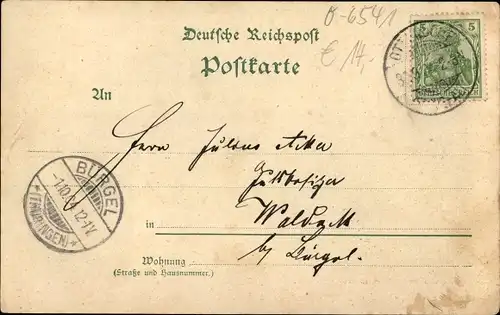 O-6541
€ 14,-
Deutsche Reichspost
Postkarte
5 5
An
Herrn Julius
Gutsbesitzer
in Waldeck
by Bürgel.
BÜRGEL
-1.10. 12-1V.
*(THÜRINGEN)*
Wohnung
(Straße und Hausnummer.)